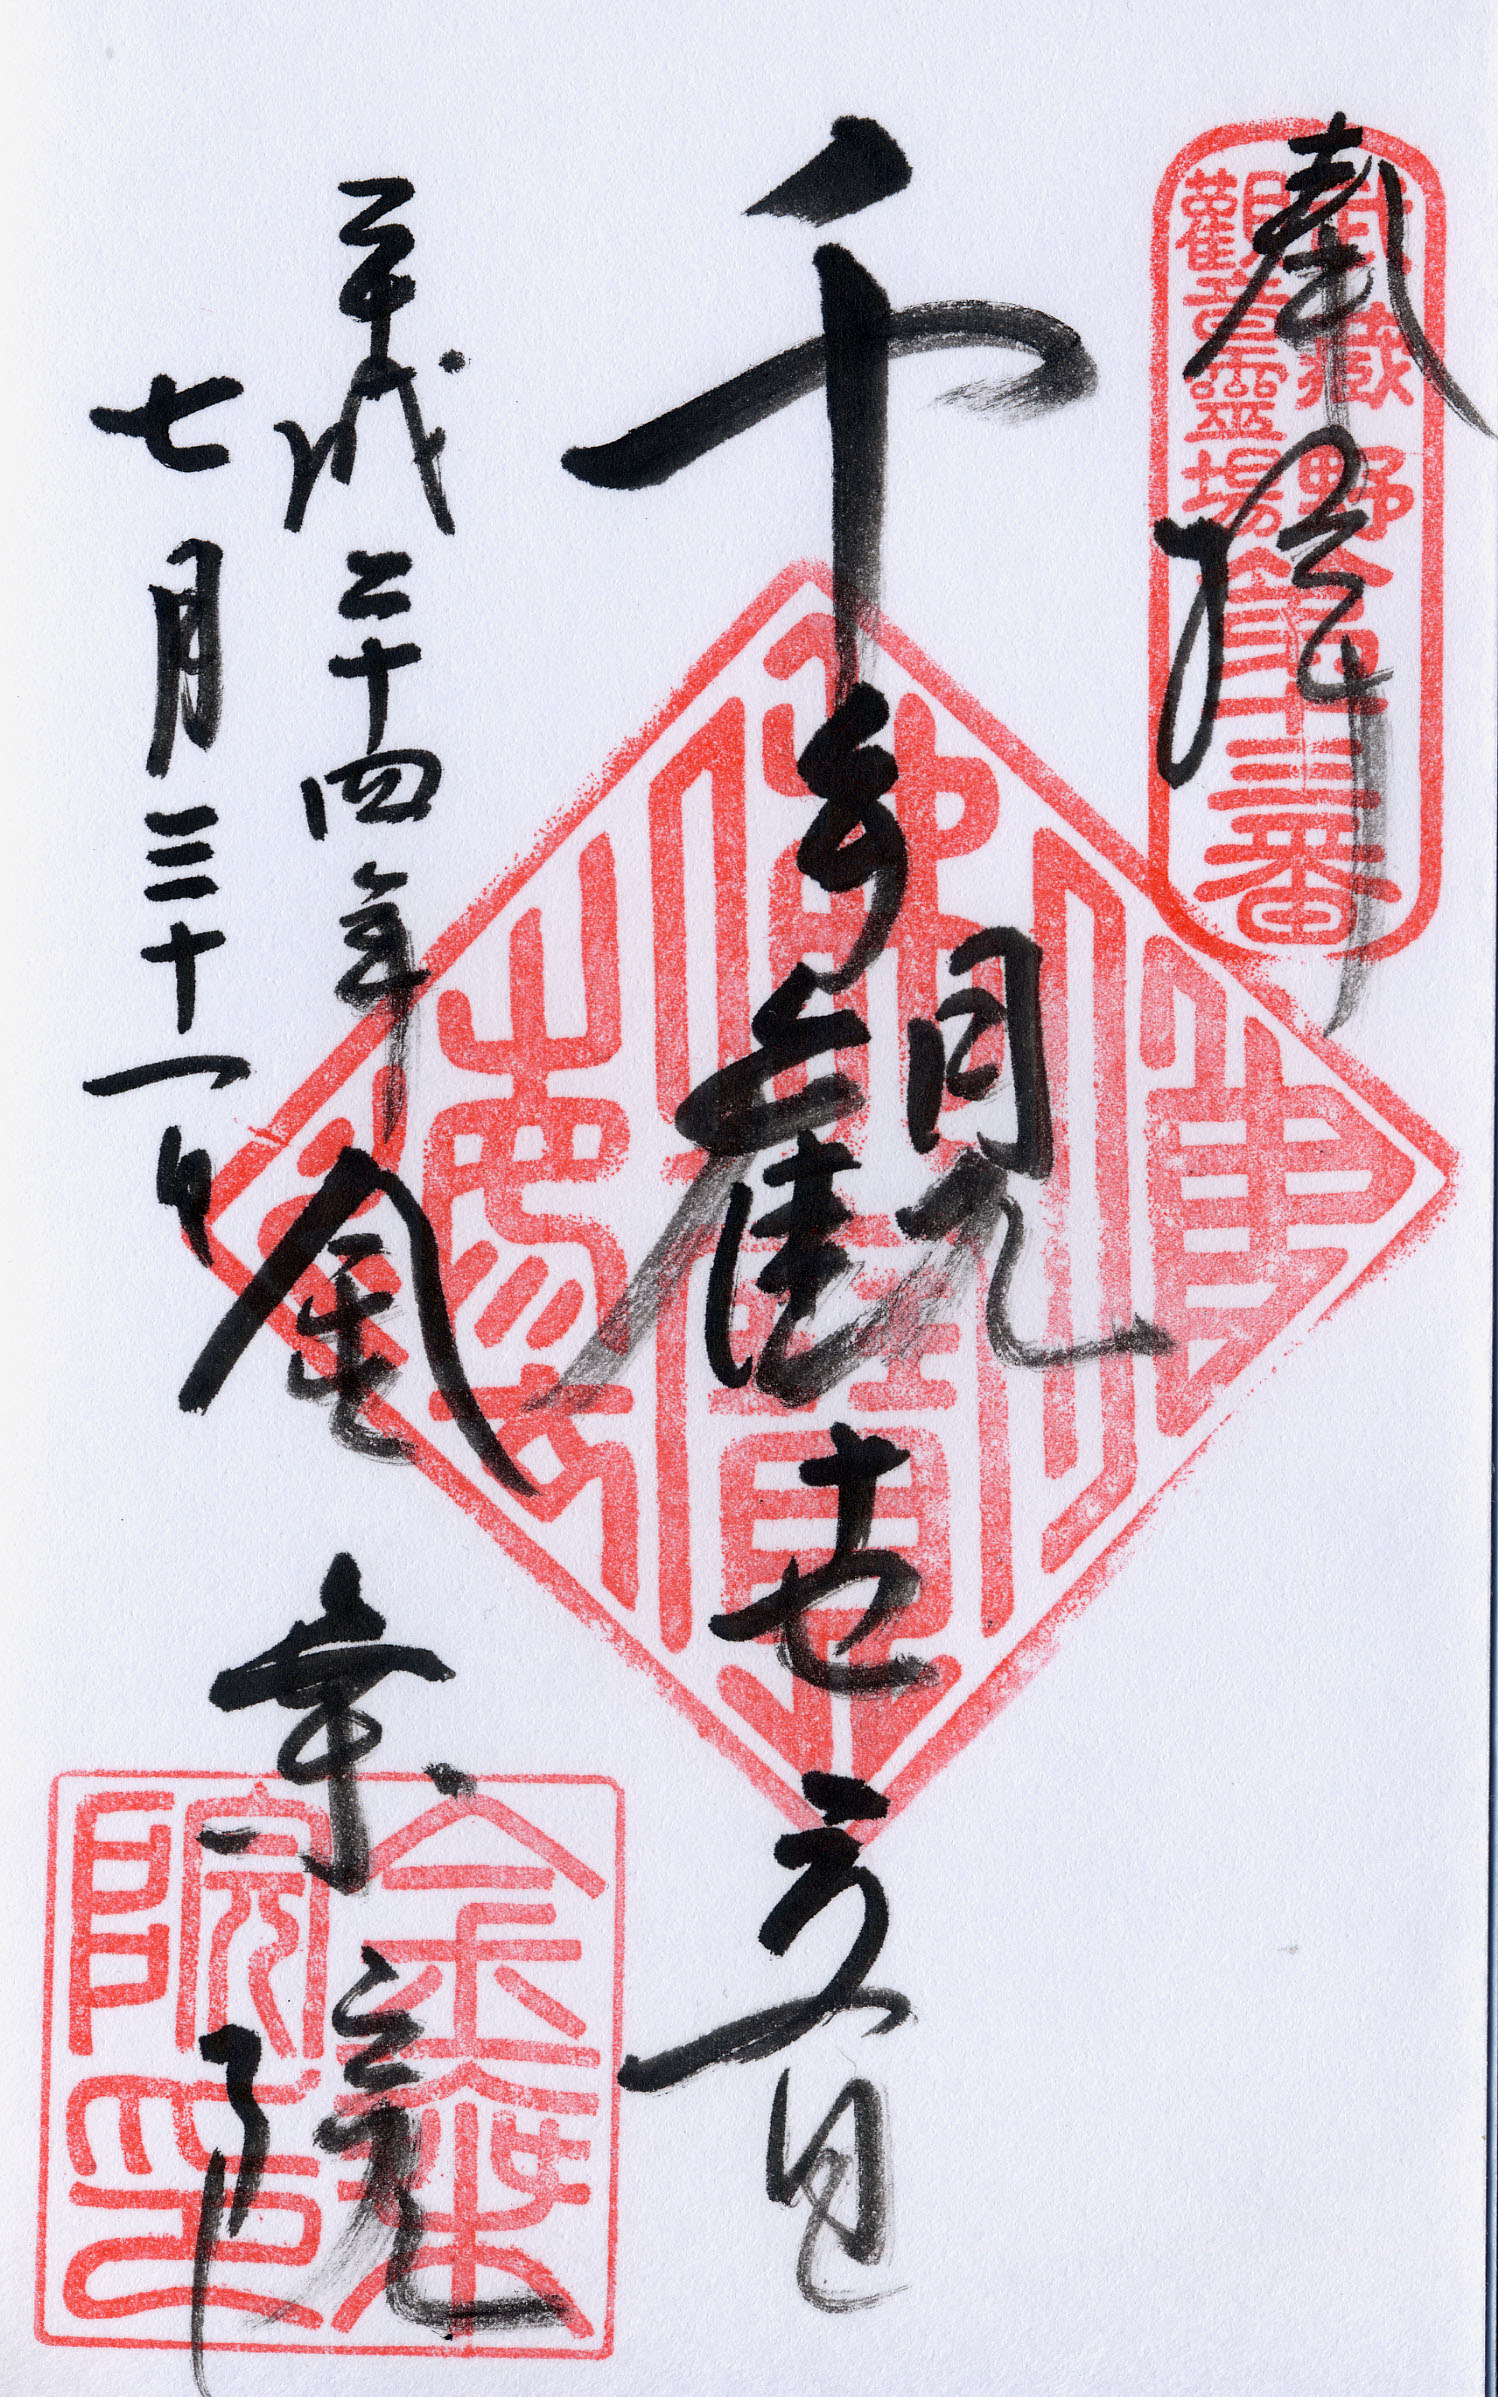 奉拝
武藏野
觀音靈場
第十三番
千手観世音
平成二十四年
七月三十一日
金乗院
金乗院印